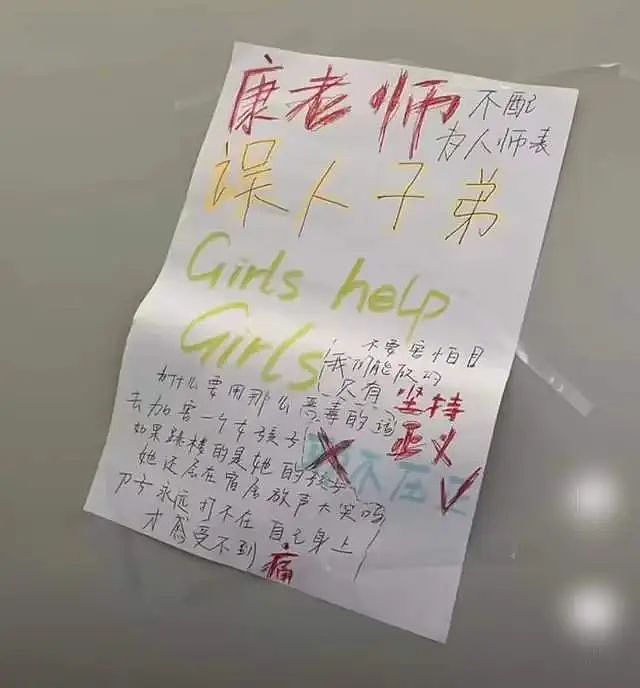 康老师 不配
为人师表
误人子弟
Girls help
Girls
不要害怕
我们能做的
只有
坚持
正义
为什么要用那么恶毒的话
去加害一个女孩子
如果跳楼的是她的孩子
她还会在宿舍放声大笑吗
刀子永远打不在自己身上
才感受不到痛